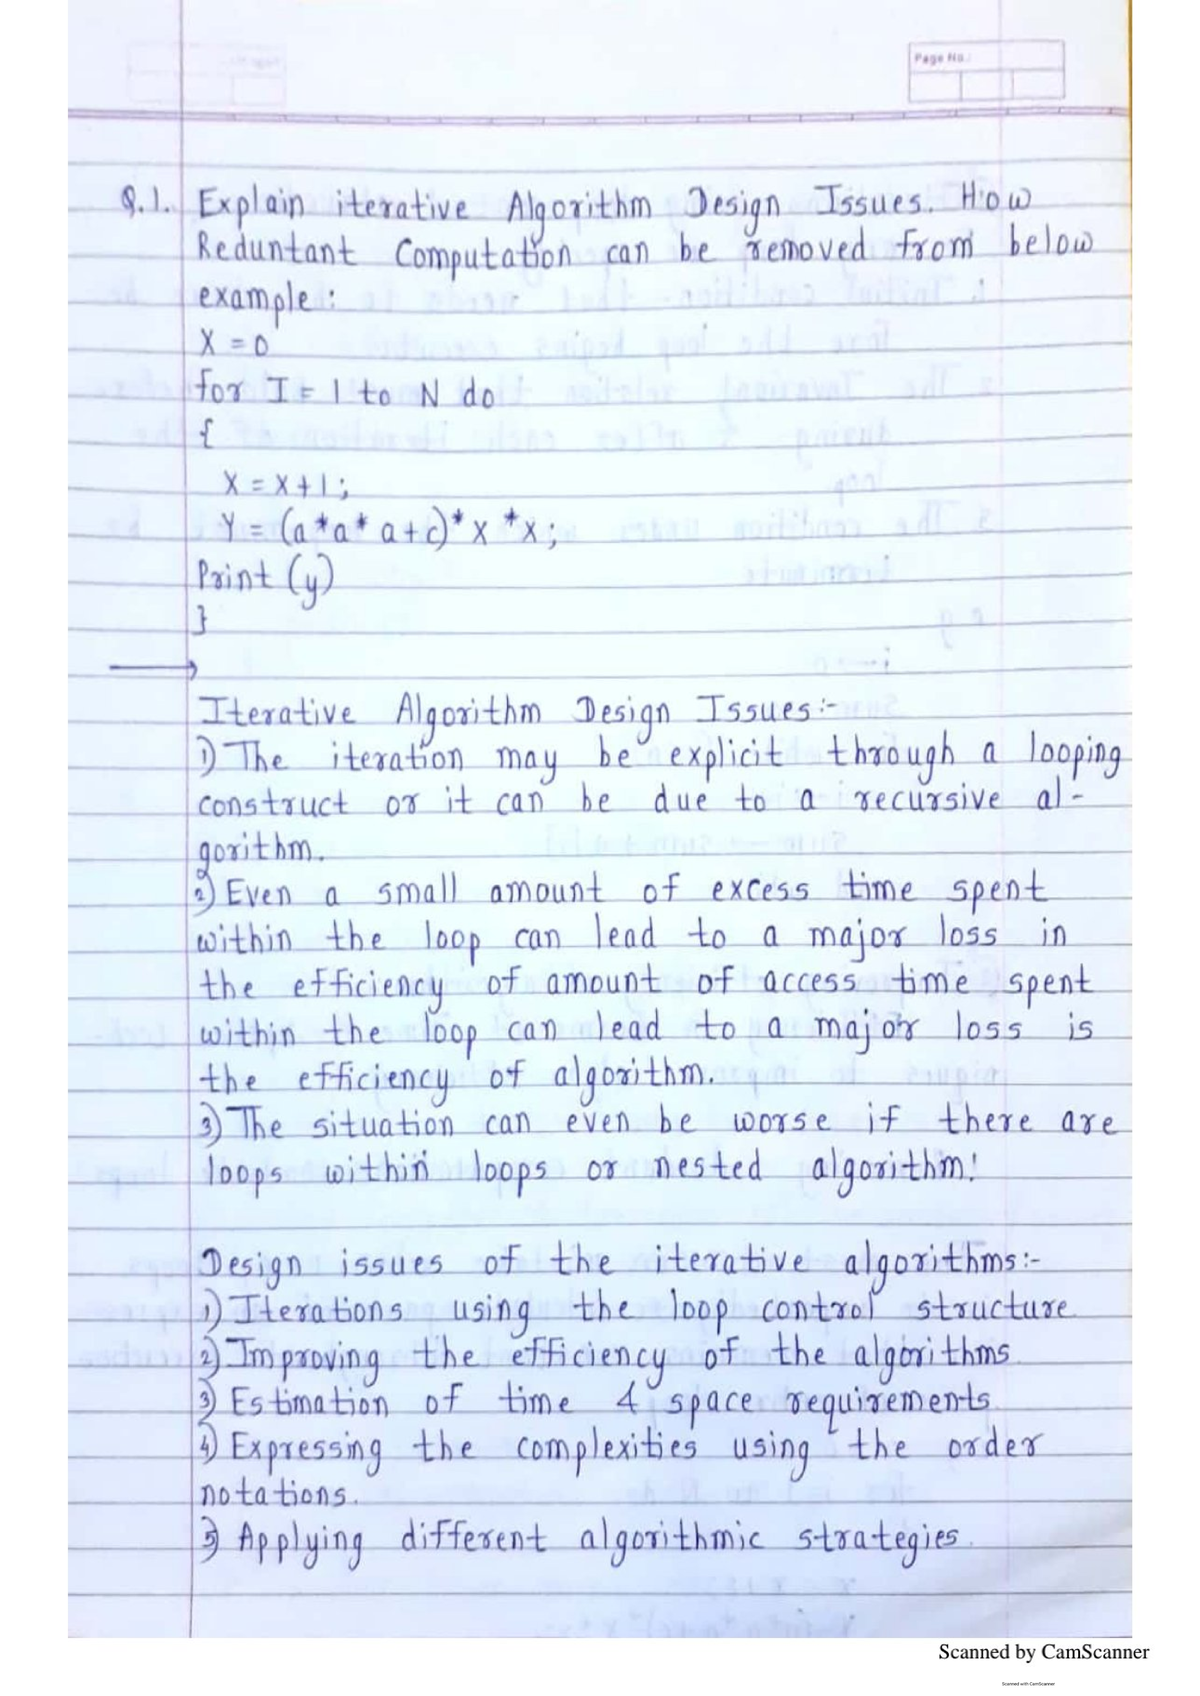 Page No.:
Q.1. Explain iterative Algorithm Design Issues. How
Reduntant Computation can be removed from below
example:
X = 0
for I = 1 to N do
{
X = X + 1;
Y = (a*a* a+c)* X *X;
Print (y)
}
Iterative Algorithm Design Issues:-
1) The iteration may be explicit through a looping
construct or it can be due to a recursive al-
gorithm.
2) Even a small amount of excess time spent
within the loop can lead to a major loss in
the efficiency of amount of access time spent
within the loop can lead to a major loss is
the efficiency of algorithm.
3) The situation can even be worse if there are
loops within loops or nested algorithm!
Design issues of the iterative algorithms:-
1) Iterations using the loop control structure
2) Improving the efficiency of the algorithms.
3) Estimation of time & space requirements.
4) Expressing the complexities using the order
notations.
5) Applying different algorithmic strategies.
Scanned by CamScanner
Scanned with CamScanner